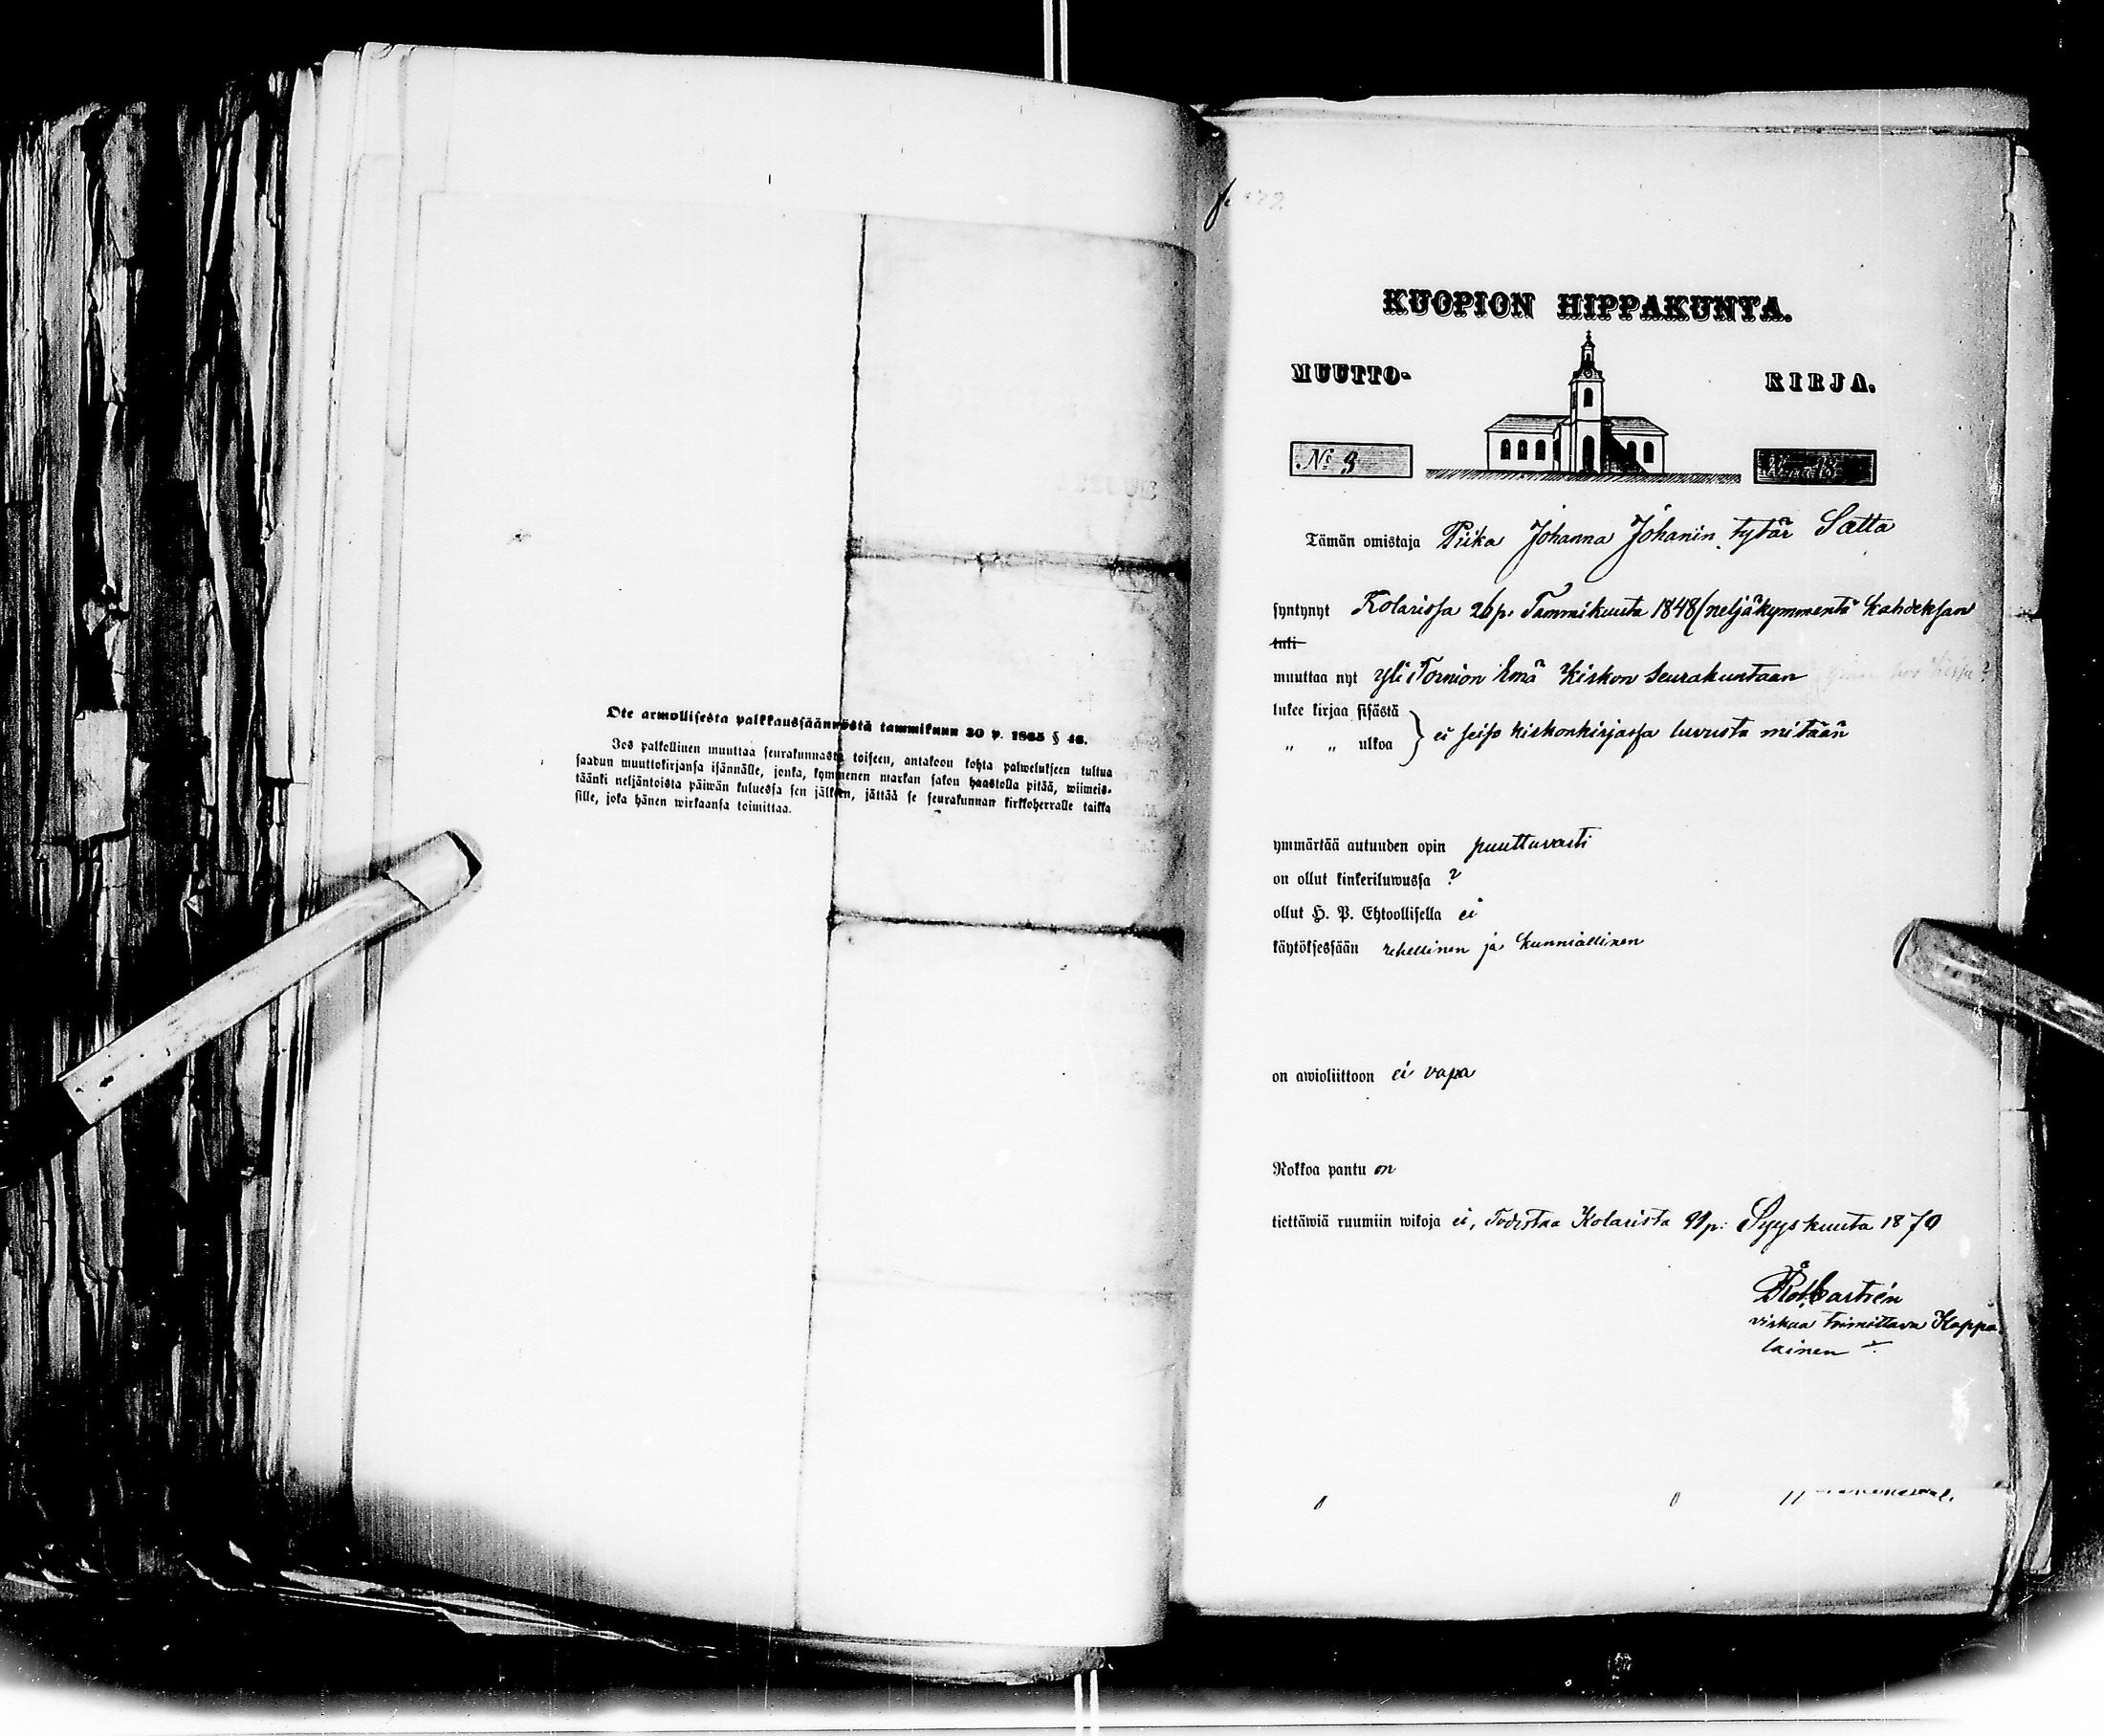 Ote armollisesta palkkaussäännöstä tammikuun 30 p. 1865 § 46.
Jos palkollinen muuttaa seurakunnasta toiseen, antakoon kohta palwelukseen tultua
saadun muuttokirjansa isännälle, jonka, kymmenen markan sakon haastolla pitää, wiimeis-
täänki neljäntoista päiwän kuluessa sen jälkeen, jättää se seurakunnan kirkkoherralle taikka
sille, joka hänen wirkaansa toimittaa.
KUOPION HIPPAKUNTA.
MUUTTO- KIRJA.
No 3
Tämän omistaja Piika Johanna Johanin tytär Satta
syntynyt Kolarissa 26 p. Tammikuuta 1848 (neljäkymmentä kahdeksan
tuli
muuttaa nyt Yli Tornion Emä Kirkon Seurakuntaan
lukee kirjaa sisästä
„ „ ulkoa } ei seiso kirkonkirjassa luvusta mitään
ymmärtää autuuden opin puuttuvasti
on ollut kinkeriluwussa ?
ollut H. P. Ehtoollisella ei
käytöksessään rehellinen ja kunniallinen
on awioliittoon ei vapa
Rokkoa pantu on
tiettäwiä ruumiin wikoja ei, Todistaa Kolarista p: Syyskuuta 1870
Castrén
virkaa toimittava Kappa
lainen